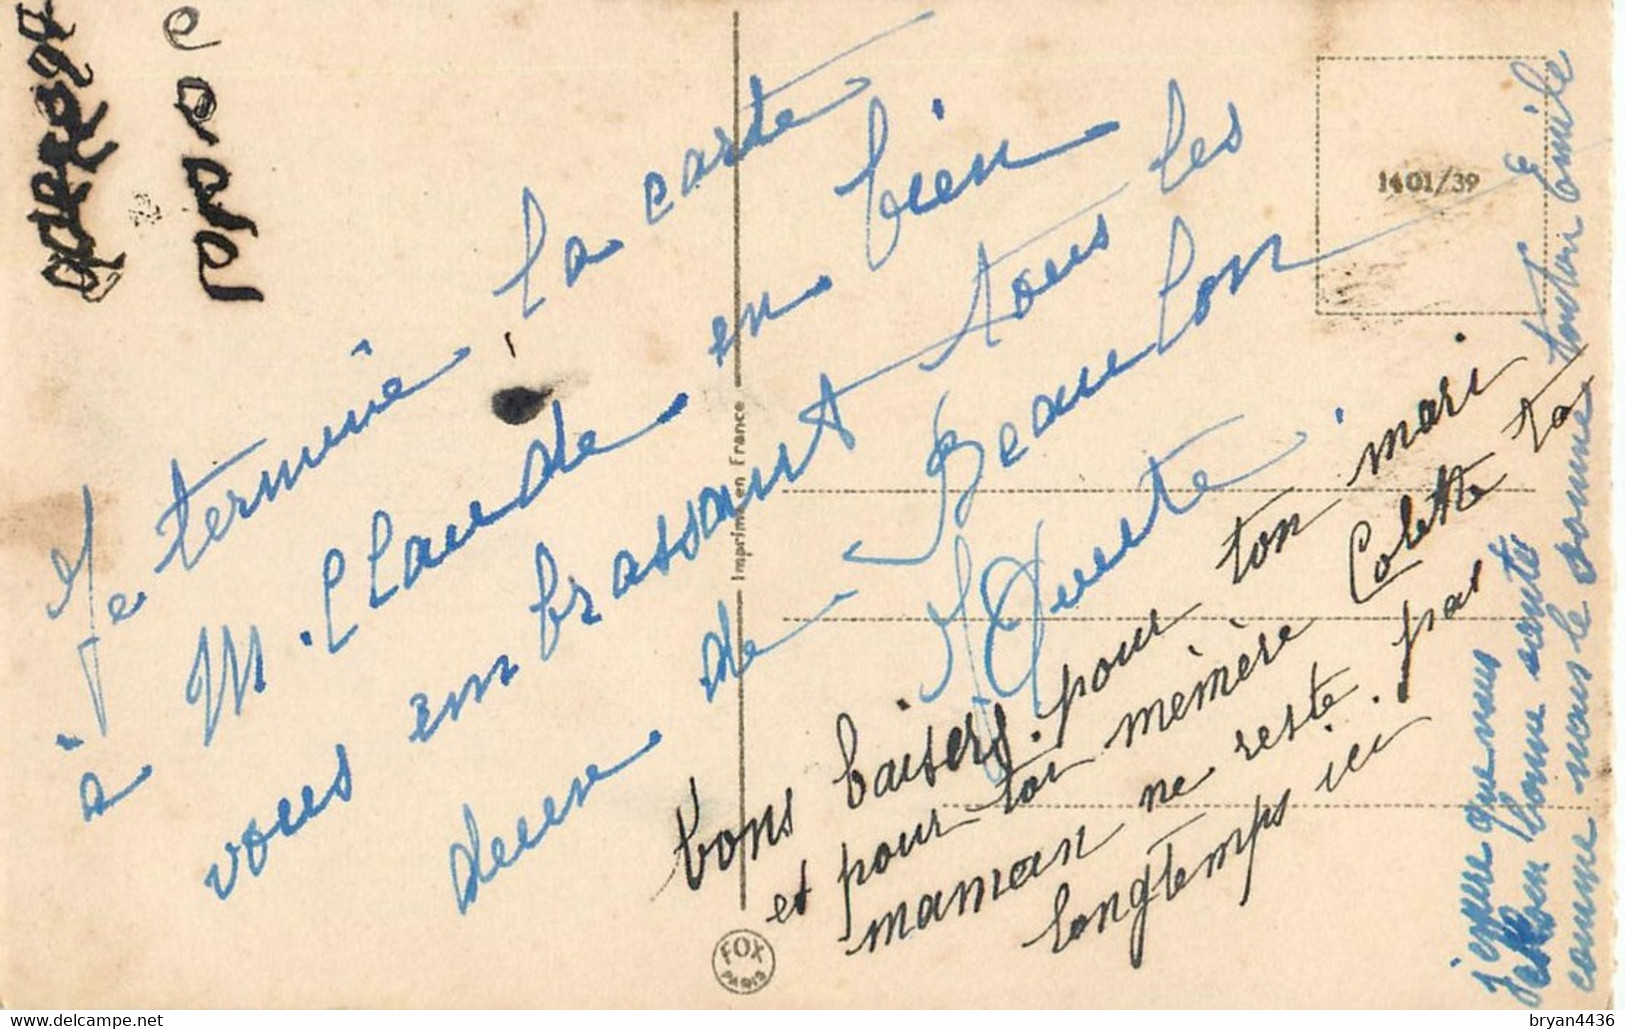 Je termine la carte
à M. Claude en bien
vous embrassant tous les
deux de Beaulon
bons baisers. pour ton mari
et pour toi mémère Colette ta
maman ne reste pas
longtemps ici
j'espère que vous
êtes en bonne santé
comme nous le sommes
tonton Emile
Imprimé en France
FOX
PARIS
1401/39
bryan4436